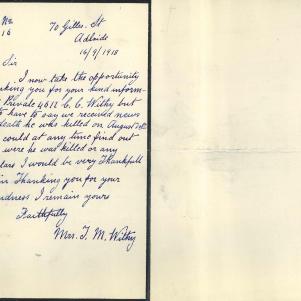 No
16
70 Gilles. St
Adelaide
16/9/1918
Sir
I now take the opportunity
king you for your kind inform-
Private 4611 C. C. Withy but
to have to say we received news
death he was killed on August
could at any time find out
were he was killed or any
lars I would be very Thankfull
in Thanking you for your
ndness I remain yours
Faithfully
Mrs. T. M. Withy